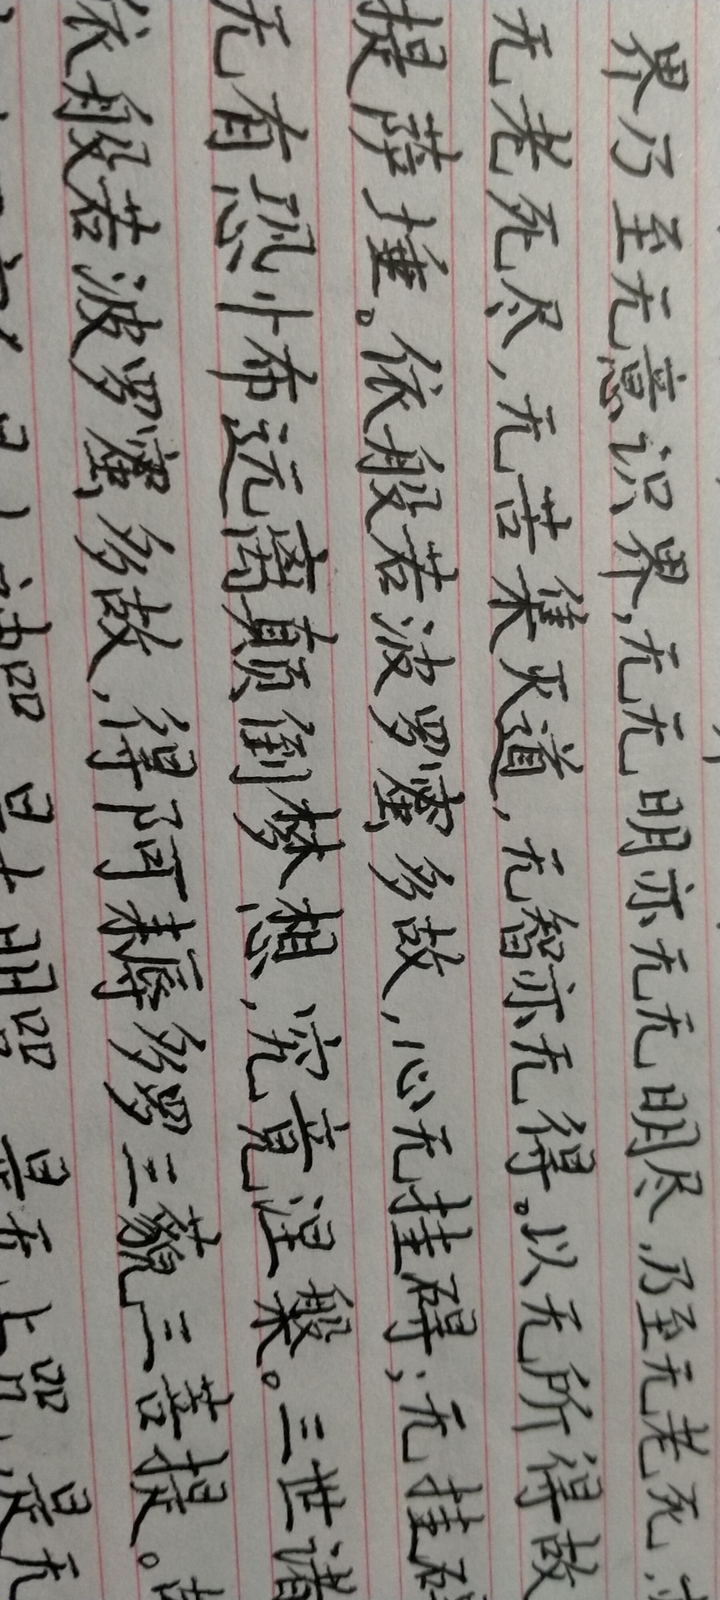 界乃至无意识界,无无明亦无无明尽,乃至无老死,
无老死尽,无苦集灭道,无智亦无得。以无所得故
提萨埵。依般若波罗蜜多故,心无挂碍;无挂碍
无有恐怖远离颠倒梦想,究竟涅槃。三世诸
依般若波罗蜜多故,得阿耨多罗三藐三菩提。故
咒 是大明咒 是无上咒,是无